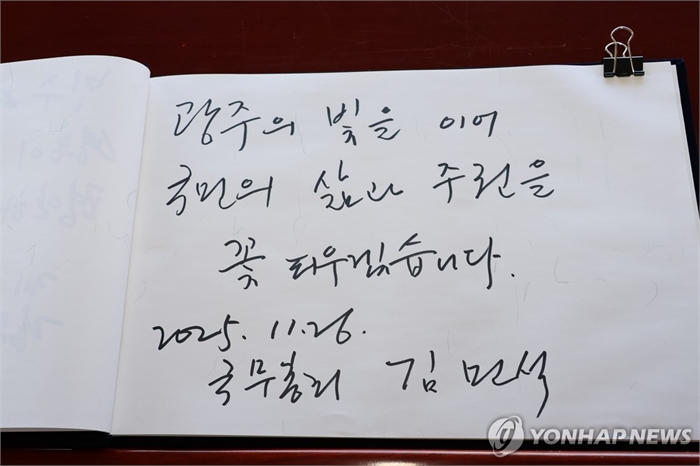 광주의 빛을 이어
국민의 삶과 주권을
꽃 피우겠습니다.
2025. 11. 26.
국무총리 김민석
YONHAPNEWS